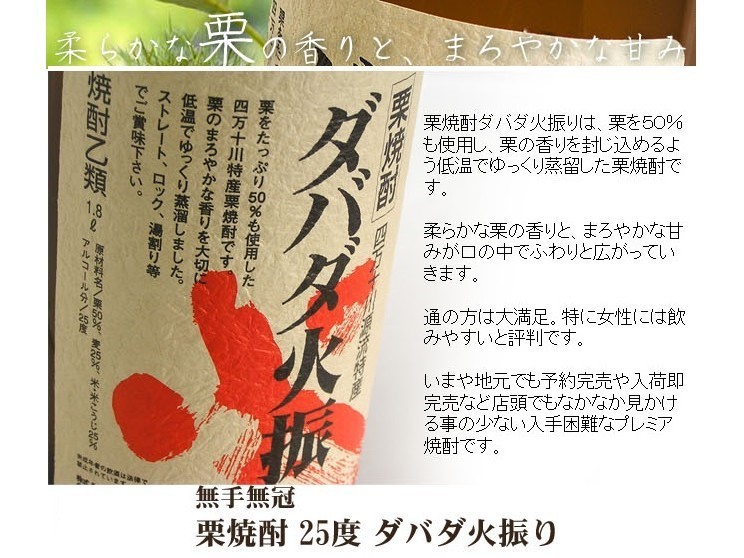 柔らかな栗の香りと、まろやかな甘み
栗焼酎ダバダ火振りは、栗を50％
も使用し、栗の香りを封じ込めるよ
う低温でゆっくり蒸留した栗焼酎で
す。
柔らかな栗の香りと、まろやかな甘
みが口の中でふわりと広がってい
きます。
通の方は大満足。特に女性には飲
みやすいと評判です。
いまや地元でも予約完売や入荷即
完売など店頭でもなかなか見かけ
る事の少ない入手困難なプレミア
焼酎です。
栗焼酎
ダバダ火振
四万十川源流特産
栗をたっぷり50%も使用した
四万十川特産栗焼酎です。
栗のまろやかな香りを大切に
低温でゆっくり蒸溜しました。
ストレート、ロック、湯割り等
でご賞味下さい。
焼酎乙類
1.8ℓ
原材料名/栗50%、麦25%、米・米こうじ25%
アルコール分/25度
未成年者の飲酒は法律で
禁止されています
無手無冠
栗焼酎 25度 ダバダ火振り